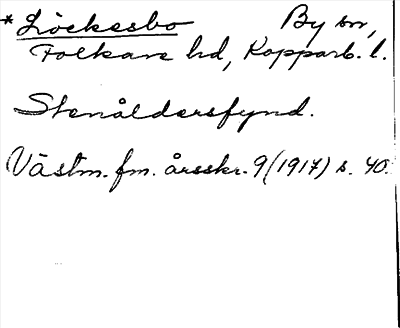 * Löckesbo By sn,
Folkare hd, Kopparb. l.
Stenåldersfynd.
Västm. fm. årsskr. 9 (1917) s. 40.